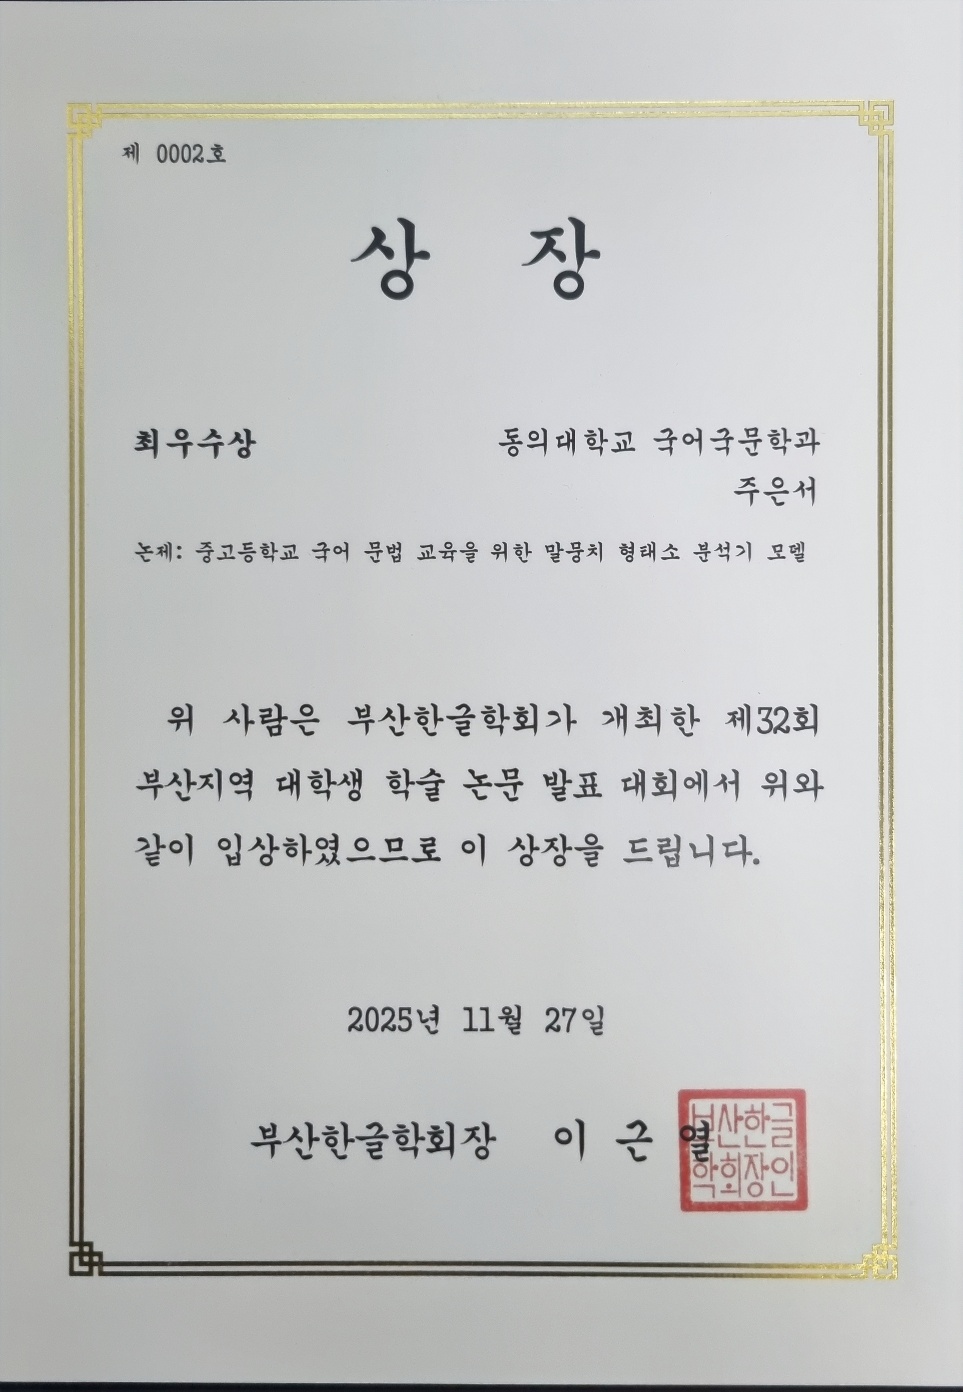 제 0002호
상 장
최우수상 동의대학교 국어국문학과
주은서
논제: 중고등학교 국어 문법 교육을 위한 말뭉치 형태소 분석기 모델
위 사람은 부산한글학회가 개최한 제32회
부산지역 대학생 학술 논문 발표 대회에서 위와
같이 입상하였으므로 이 상장을 드립니다.
2025년 11월 27일
부산한글학회장 이 근 열
부산한글
학회장인